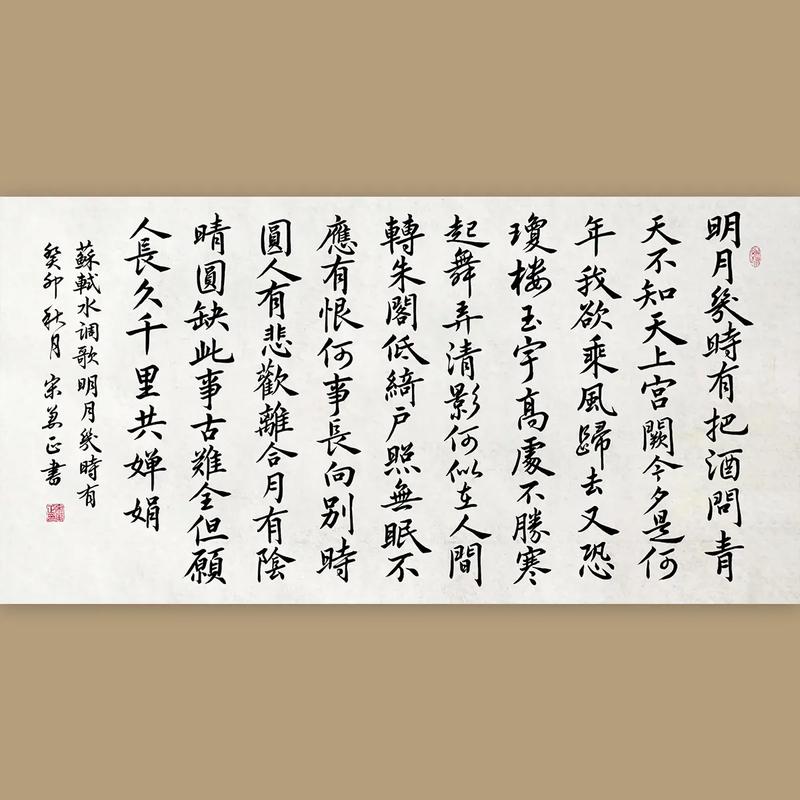 明月幾時有把酒問青
天不知天上宫闕今夕是何
年我欲乘風歸去又恐
瓊楼玉宇高處不勝寒
起舞弄清影何似在人間
轉朱閣低綺户照無眠不
應有恨何事長向别時
圓人有悲歡離合月有陰
晴圓缺此事古難全但願
人長久千里共婵娟
蘇軾水调歌明月幾時有
癸卯秋月宋正书